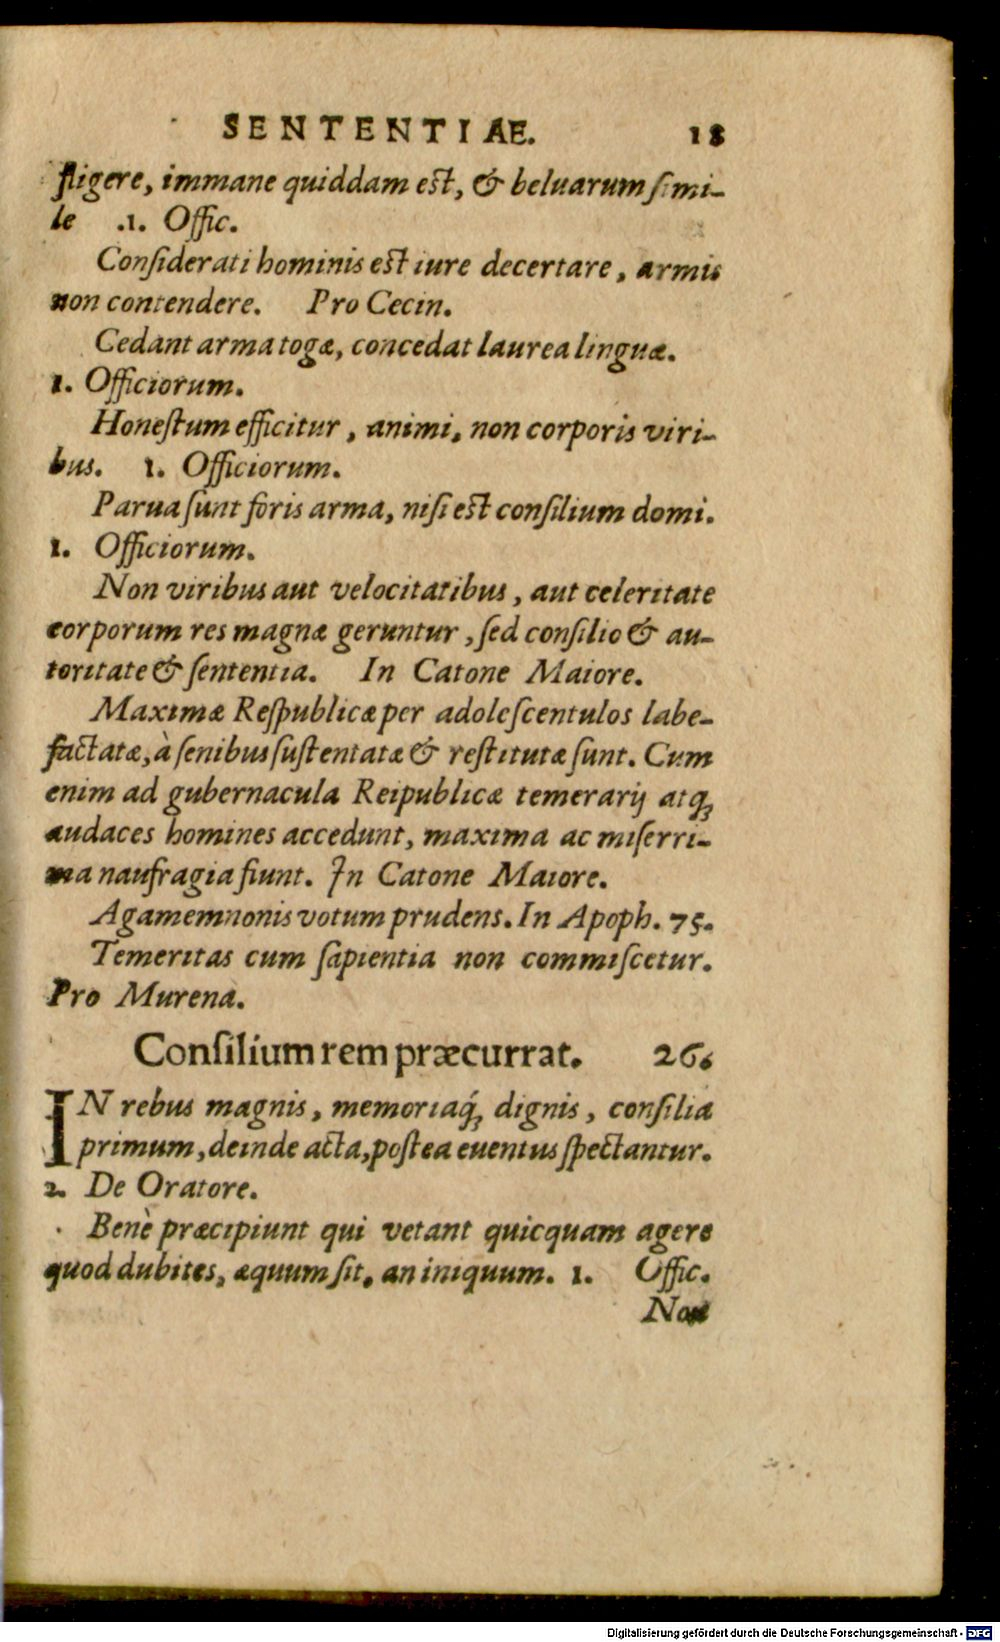 SENTENTIAE. 18
fligere, immane quiddam est, & beluarum simi-
le .1. Offic.
Considerati hominis est iure decertare, armis
non contendere. Pro Cecin.
Cedant arma togæ, concedat laurea linguæ.
1. Officiorum.
Honestum efficitur, animi, non corporis viri-
bus. 1. Officiorum.
Parua sunt foris arma, nisi est consilium domi.
1. Officiorum.
Non viribus aut velocitatibus, aut celeritate
corporum res magnæ geruntur, sed consilio & au-
toritate & sententia. In Catone Maiore.
Maximæ Respublicæ per adolescentulos labe-
factatæ, à senibus sustentatæ & restitutæ sunt. Cum
enim ad gubernacula Reipublicæ temerarij atq;
audaces homines accedunt, maxima ac miserri-
ma naufragia fiunt. In Catone Maiore.
Agamemnonis votum prudens. In Apoph. 75.
Temeritas cum sapientia non commiscetur.
Pro Murena.
Consilium rem præcurrat. 26.
IN rebus magnis, memoriaq́; dignis, consilia
primum, deinde acta, postea euentus spectantur.
2. De Oratore.
Benè præcipiunt qui vetant quicquam agere
quod dubites, æquum sit, an iniquum. 1. Offic.
Non
Digitalisierung gefördert durch die Deutsche Forschungsgemeinschaft - DFG